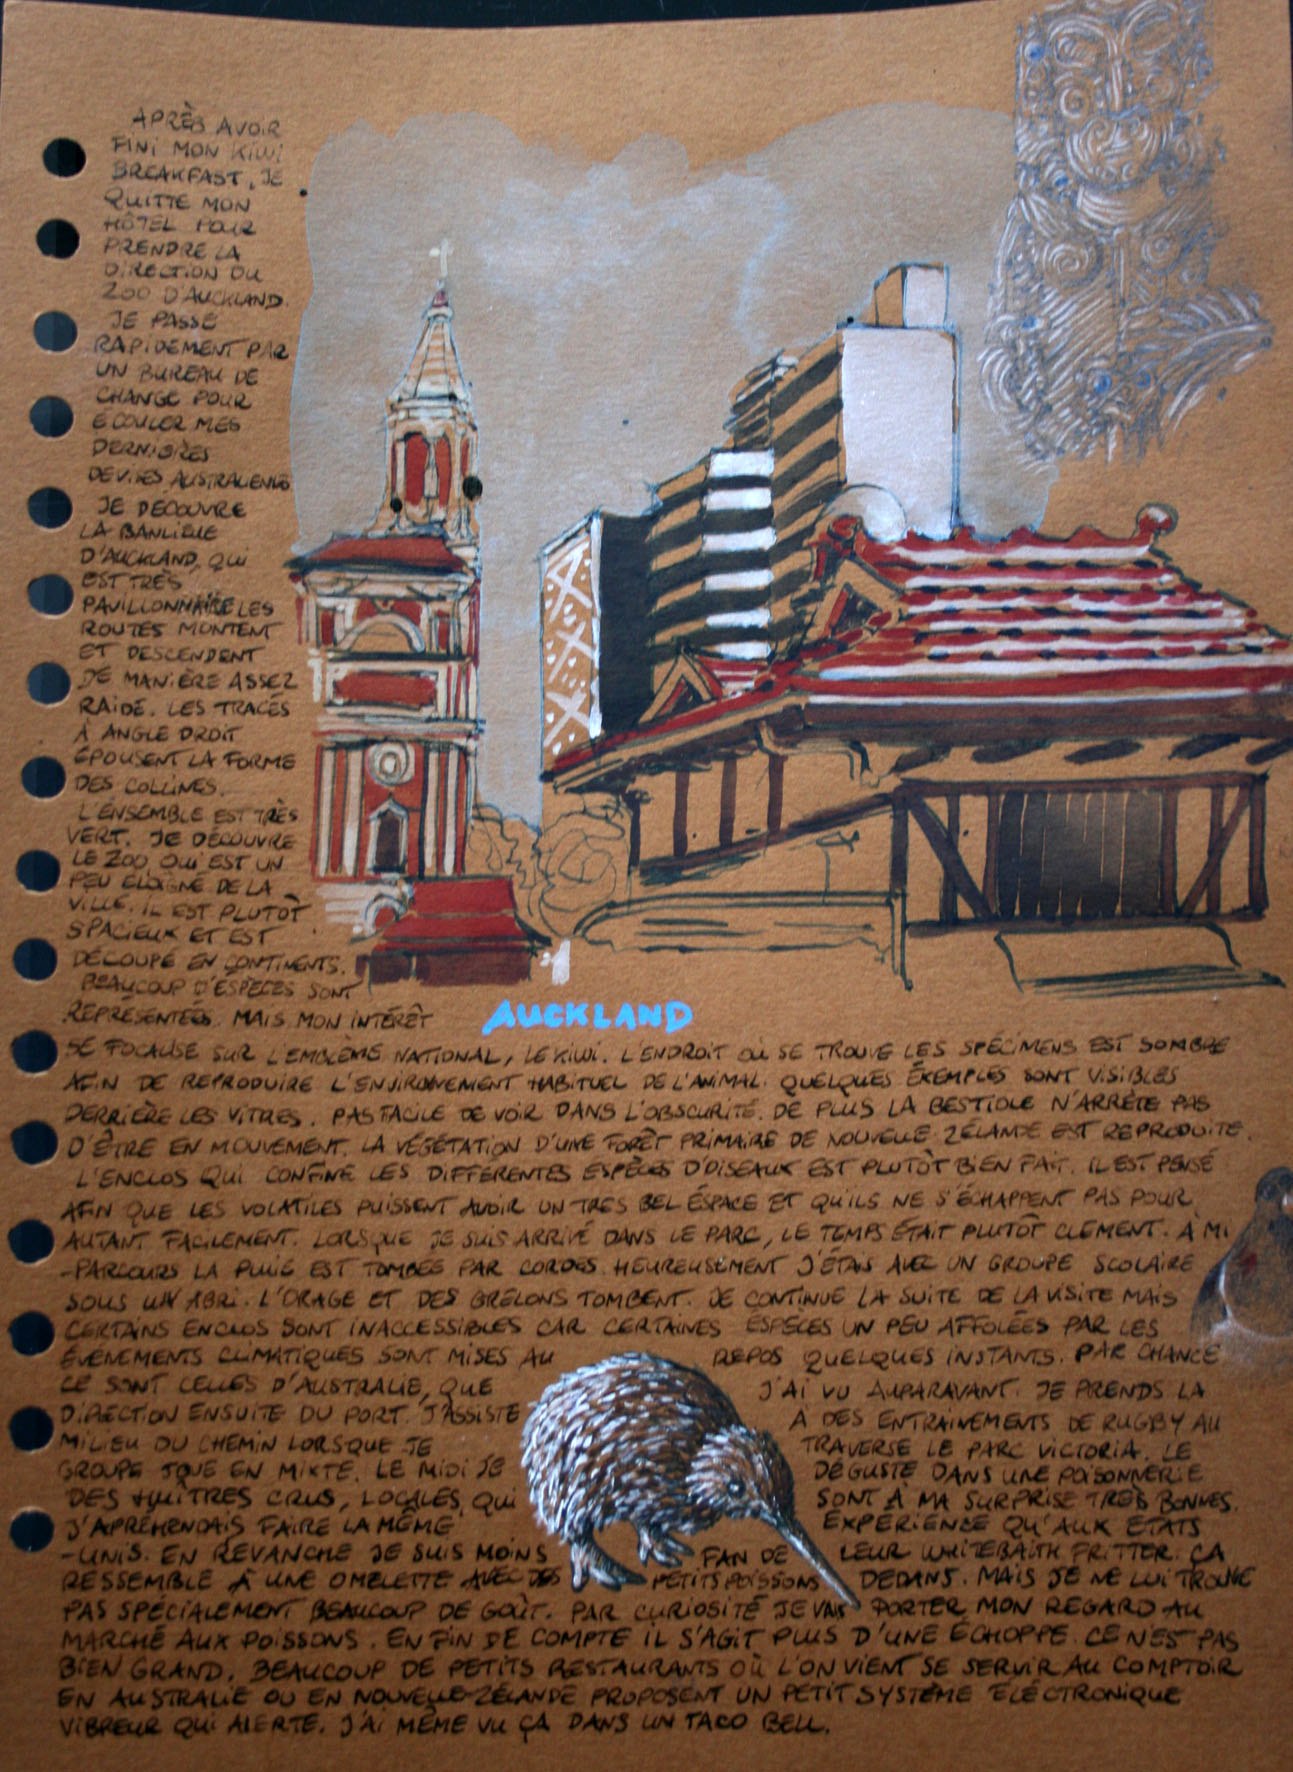 APRÈS AVOIR
FINI MON KIWI
BREAKFAST, JE
QUITTE MON
HÔTEL POUR
PRENDRE LA
DIRECTION DU
ZOO D'AUCKLAND.
JE PASSE
RAPIDEMENT PAR
UN BUREAU DE
CHANGE POUR
ÉCOULER MES
DERNIÈRES
DEVISES AUSTRALIENNES
JE DÉCOUVRE
LA BANLIEUE
D'AUCKLAND, QUI
EST TRÈS
PAVILLONNAIRE LES
ROUTES MONTENT
ET DESCENDENT
DE MANIÈRE ASSEZ
RAIDE. LES TRACÉS
À ANGLE DROIT
ÉPOUSENT LA FORME
DES COLLINES.
L'ENSEMBLE EST TRÈS
VERT. JE DÉCOUVRE
LE ZOO QUI EST UN
PEU ÉLOIGNÉ DE LA
VILLE. IL EST PLUTÔT
SPACIEUX ET EST
DÉCOUPÉ EN CONTINENTS.
BEAUCOUP D'ESPÈCES SONT
REPRÉSENTÉES. MAIS MON INTÉRÊT
AUCKLAND
SE FOCALISE SUR L'EMBLÈME NATIONAL, LE KIWI. L'ENDROIT OÙ SE TROUVE LES SPÉCIMENS EST SOMBRE
AFIN DE REPRODUIRE L'ENVIRONNEMENT HABITUEL DE L'ANIMAL. QUELQUES EXEMPLES SONT VISIBLES
DERRIÈRE LES VITRES. PAS FACILE DE VOIR DANS L'OBSCURITÉ. DE PLUS LA BESTIOLE N'ARRÊTE PAS
D'ÊTRE EN MOUVEMENT. LA VÉGÉTATION D'UNE FORÊT PRIMAIRE DE NOUVELLE-ZÉLANDE EST REPRODUITE.
L'ENCLOS QUI CONFINE LES DIFFÉRENTES ESPÈCES D'OISEAUX EST PLUTÔT BIEN FAIT. IL EST PENSÉ
AFIN QUE LES VOLATILES PUISSENT AVOIR UN TRÈS BEL ÉSPACE ET QU'ILS NE S'ÉCHAPPENT PAS POUR
AUTANT FACILEMENT. LORSQUE JE SUIS ARRIVÉ DANS LE PARC, LE TEMPS ÉTAIT PLUTÔT CLÉMENT. À MI
-PARCOURS LA PLUIE EST TOMBÉE PAR CORDES. HEUREUSEMENT J'ÉTAIS AVEC UN GROUPE SCOLAIRE
SOUS UN ABRI. L'ORAGE ET DES GRÊLONS TOMBENT. JE CONTINUE LA SUITE DE LA VISITE MAIS
CERTAINS ENCLOS SONT INACCESSIBLES CAR CERTAINES ESPÈCES UN PEU AFFOLÉES PAR LES
ÉVÉNEMENTS CLIMATIQUES SONT MISES AU REPOS QUELQUES INSTANTS. PAR CHANCE
CE SONT CELLES D'AUSTRALIE, QUE J'AI VU AUPARAVANT. JE PRENDS LA
DIRECTION ENSUITE DU PORT. J'ASSISTE À DES ENTRAINEMENTS DE RUGBY AU
MILIEU DU CHEMIN LORSQUE JE TRAVERSE LE PARC VICTORIA. LE
GROUPE JOUE EN MIXTE. LE MIDI JE DÉGUSTE DANS UNE POISONNERIE
DES HUÎTRES CRUS, LOCALES, QUI SONT À MA SURPRISE TRÈS BONNES.
J'APRÉHENDAIS FAIRE LA MÊME EXPÉRIENCE QU'AUX ETATS
-UNIS. EN REVANCHE JE SUIS MOINS FAN DE LEUR WHITEBAITH FRITTER. ÇA
RESSEMBLE À UNE OMELETTE AVEC DES PETITS POISSONS DEDANS. MAIS JE NE LUI TROUVE
PAS SPÉCIALEMENT BEAUCOUP DE GOÛT. PAR CURIOSITÉ JE VAIS PORTER MON REGARD AU
MARCHÉ AUX POISSONS. EN FIN DE COMPTE IL S'AGIT PLUS D'UNE ÉCHOPPE. CE N'EST PAS
BIEN GRAND. BEAUCOUP DE PETITS RESTAURANTS OÙ L'ON VIENT SE SERVIR AU COMPTOIR
EN AUSTRALIE OU EN NOUVELLE-ZÉLANDE PROPOSENT UN PETIT SYSTÈME ÉLÉCTRONIQUE
VIBREUR QUI ALERTE. J'AI MÊME VU ÇA DANS UN TACO BELL.